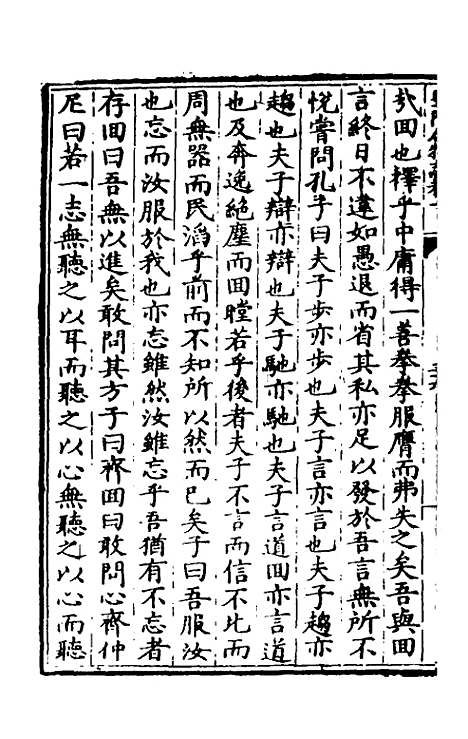 㢤回也擇乎中庸得一善拳拳服膺而弗失之矣吾與回
言終日不違如愚退而省其私亦足以發於吾言無所不
悅嘗問孔子曰夫子步亦步也夫子言亦言也夫子趨亦
趨也夫子辯亦辯也夫子馳亦馳也夫子言道回亦言道
也及奔逸絕塵而回瞠若乎後者夫子不言而信不比而
周無器而民滔乎前而不知所以然而已矣子曰吾服汝
也忘而汝服於我也亦忘雖然汝雖忘乎吾猶有不忘者
存回曰吾無以進矣敢問其方子曰齊回曰敢問心齊仲
尼曰若一志無聽之以耳而聽之以心無聽之以心而聽